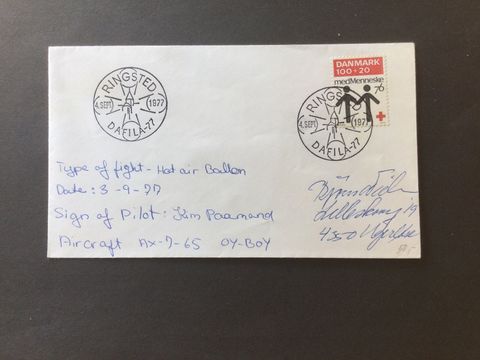 RINGSTED
4.SEPT. 1977
DAFILA-77
DANMARK
100+20
medMenneske
76
RINGSTED
4.SEPT. 1977
DAFILA-77
Type of fight - Hot air Ballon
Date: 3-9-77
Sign of Pilot: Kim Paamand
Aircraft AX-7-65 OY-BOY
19
4350